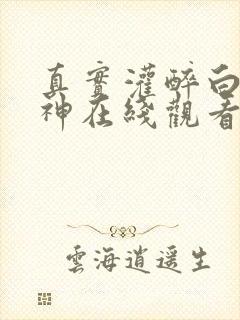 真實灌醉白
神在綫觀看
雲海逍遥生